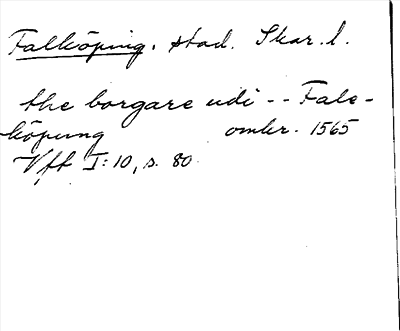 Falköping, stad. Skar. l.
the borgare udi -- Fale-
köpung omkr. 1565
Vfft I:10, s. 80.